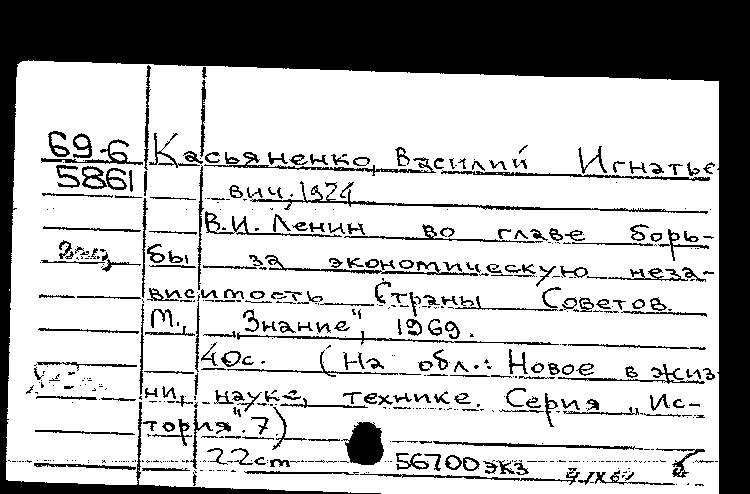 69-6 Касьяненко, Василий Игнатье-
5861 вич, 1924
В.И. Ленин во главе борь-
бы за экономическую неза-
висимость Страны Советов.
М., „Знание", 1969.
40с. (На обл.: Новое в жиз-
ни, науке, технике. Серия „Ис-
тория". 7)
22cm 56700 экз